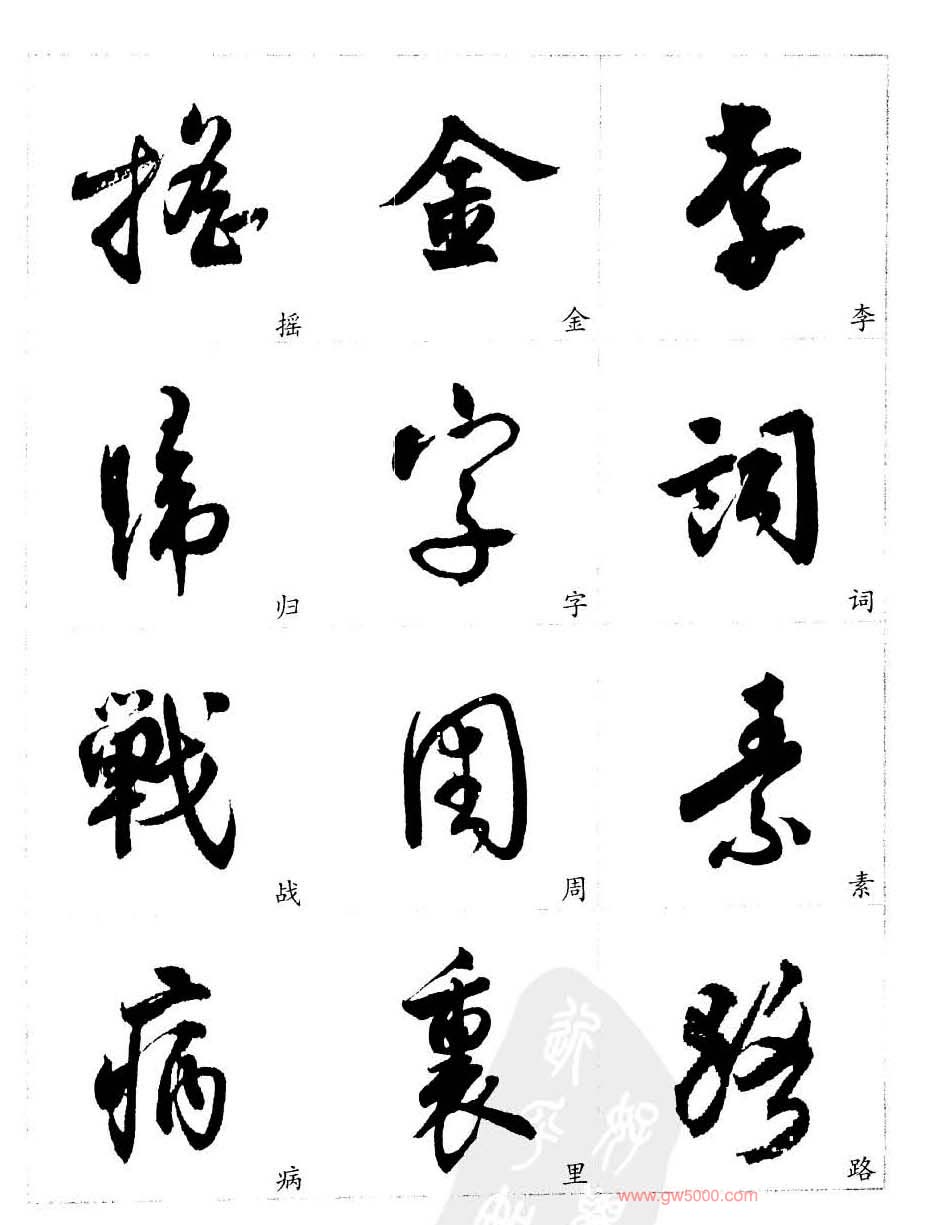 搖 金 李
摇 金 李
歸 字 詞
归 字 词
戰 周 素
战 周 素
病 裏 路
病 里 路
www.gw5000.com